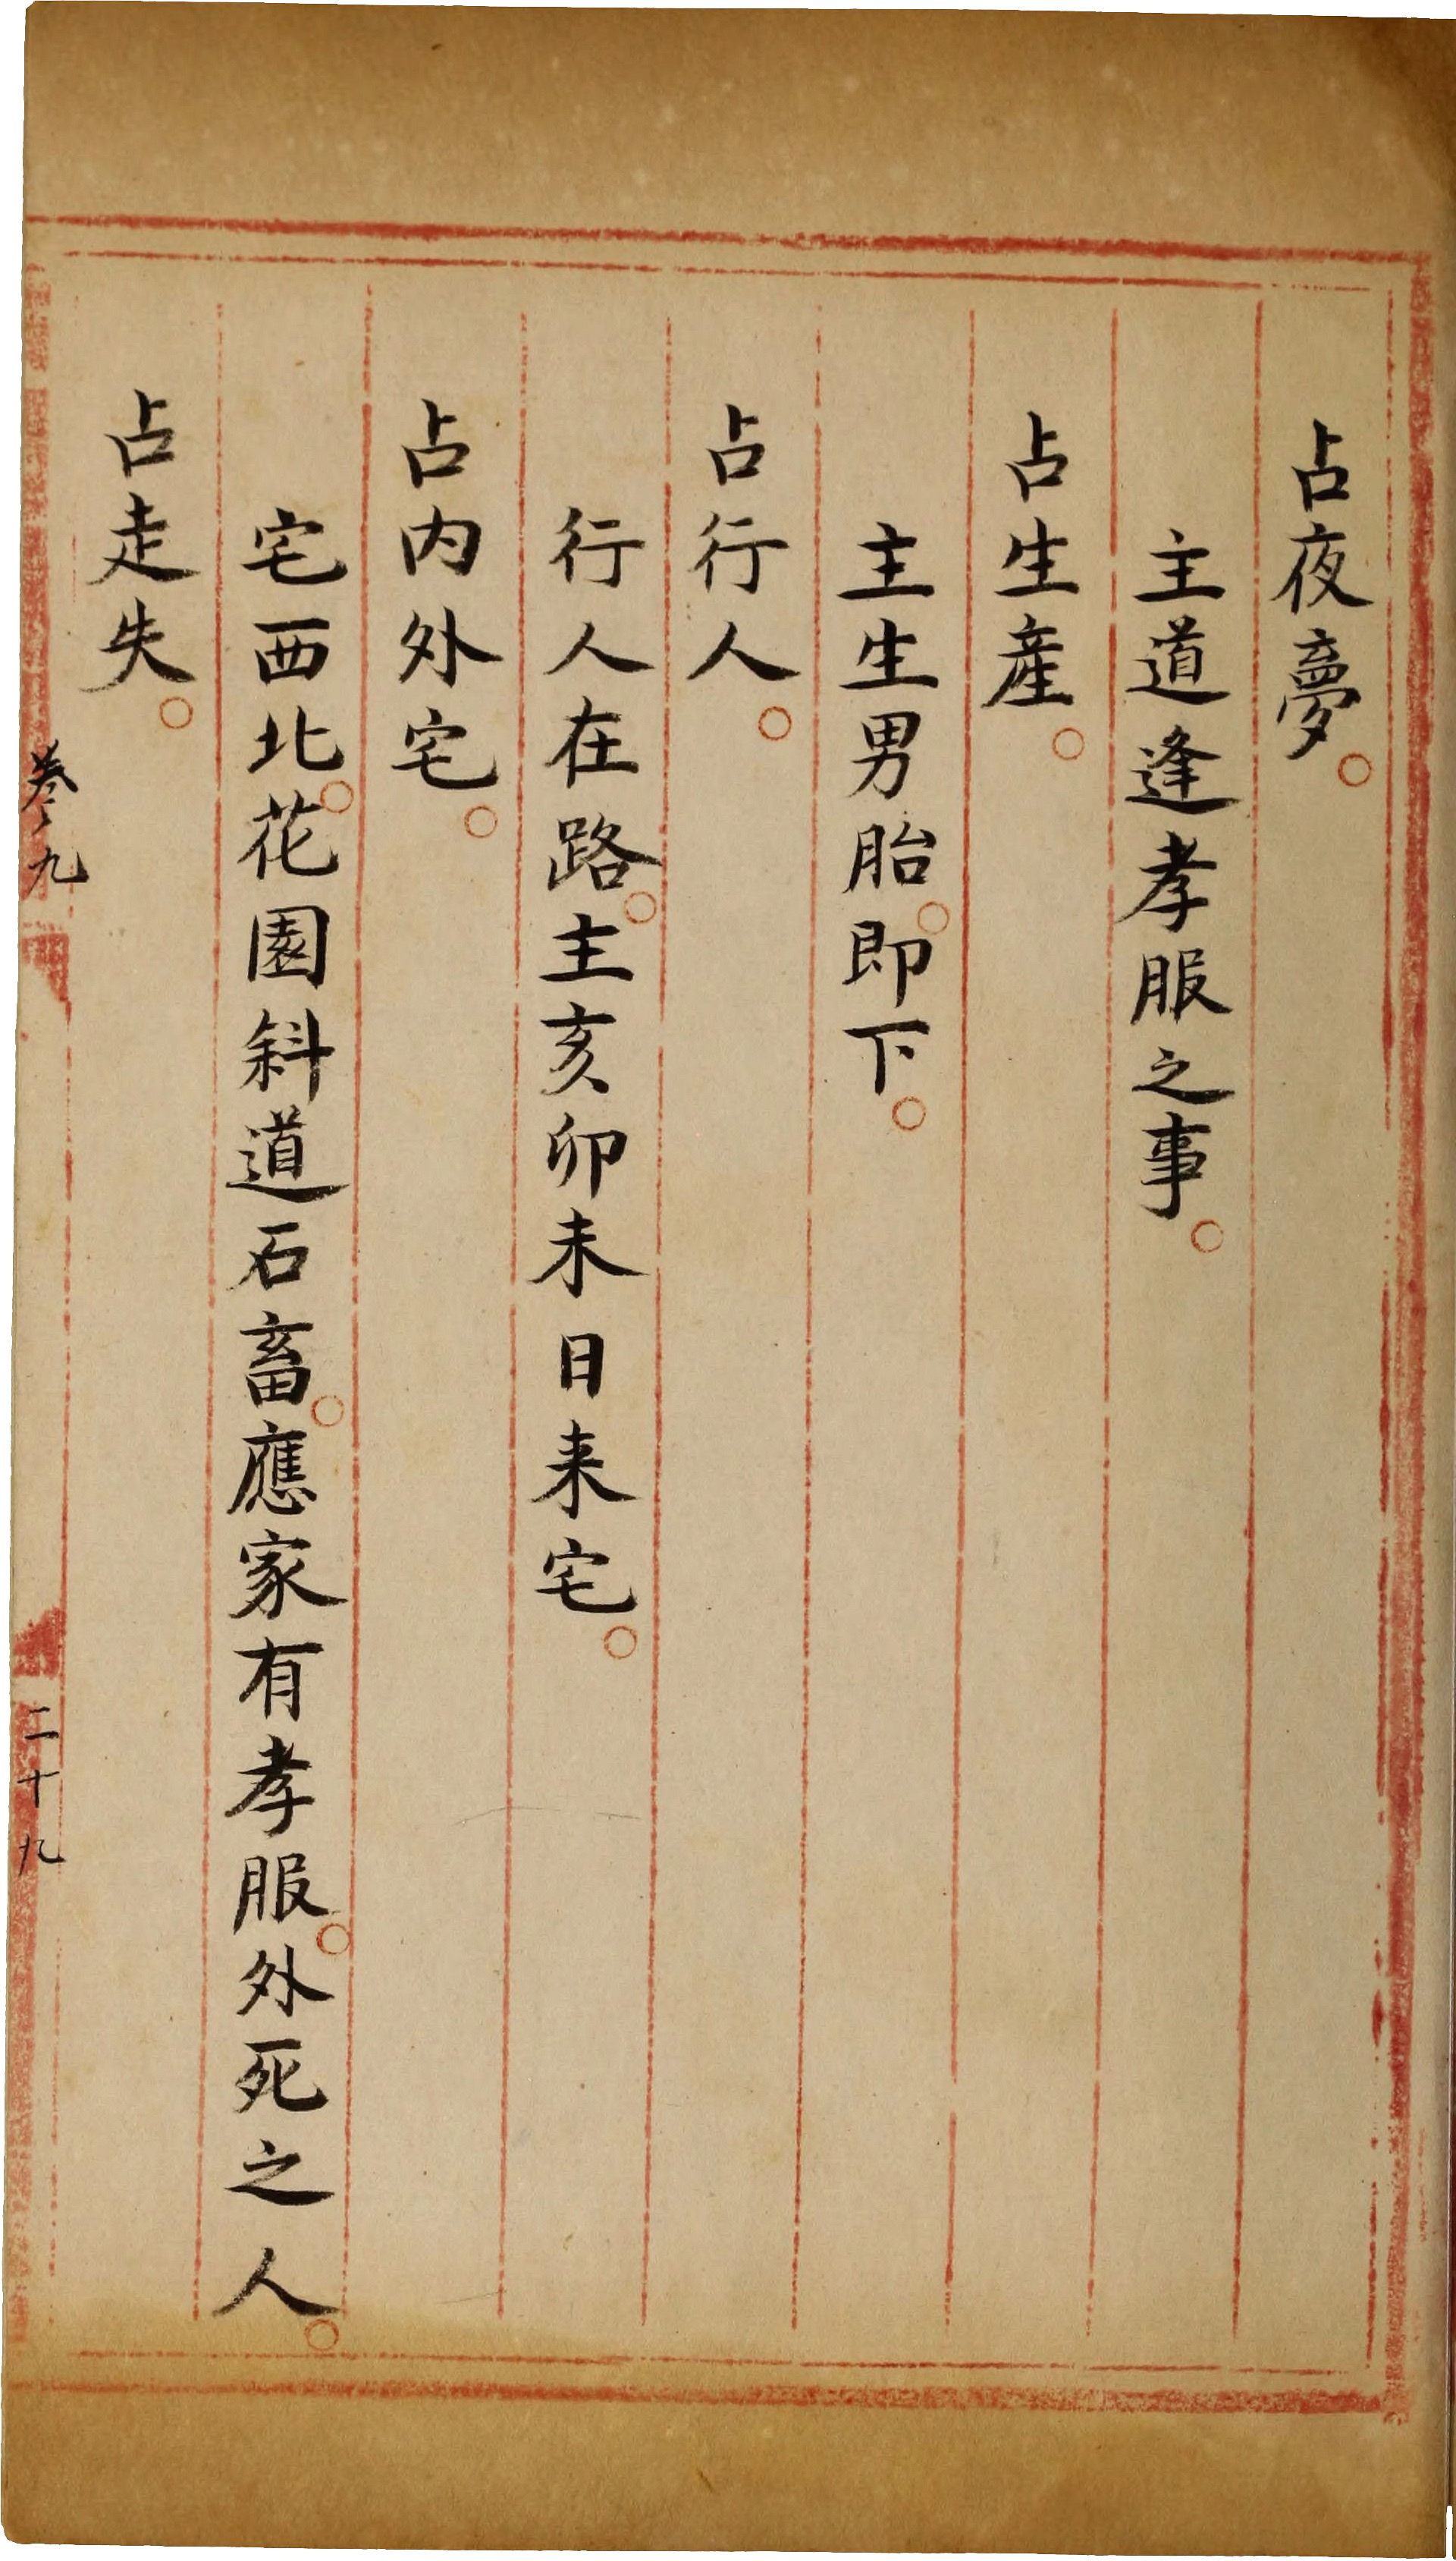 占夜夢。
主道逢孝服之事。
占生產。
主生男胎。即下。
占行人。
行人在路。主亥卯未日来宅。
占内外宅。
宅西北。花園斜道石畜。應家有孝服。外死之人。
占走失。
卷九
二十九